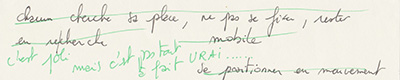 chacun cherche sa place, ne pas se fixer, rester
en recherche mobile
c'est joli
mais c'est pas tout
à fait VRAI.....
se positionner en mouvement